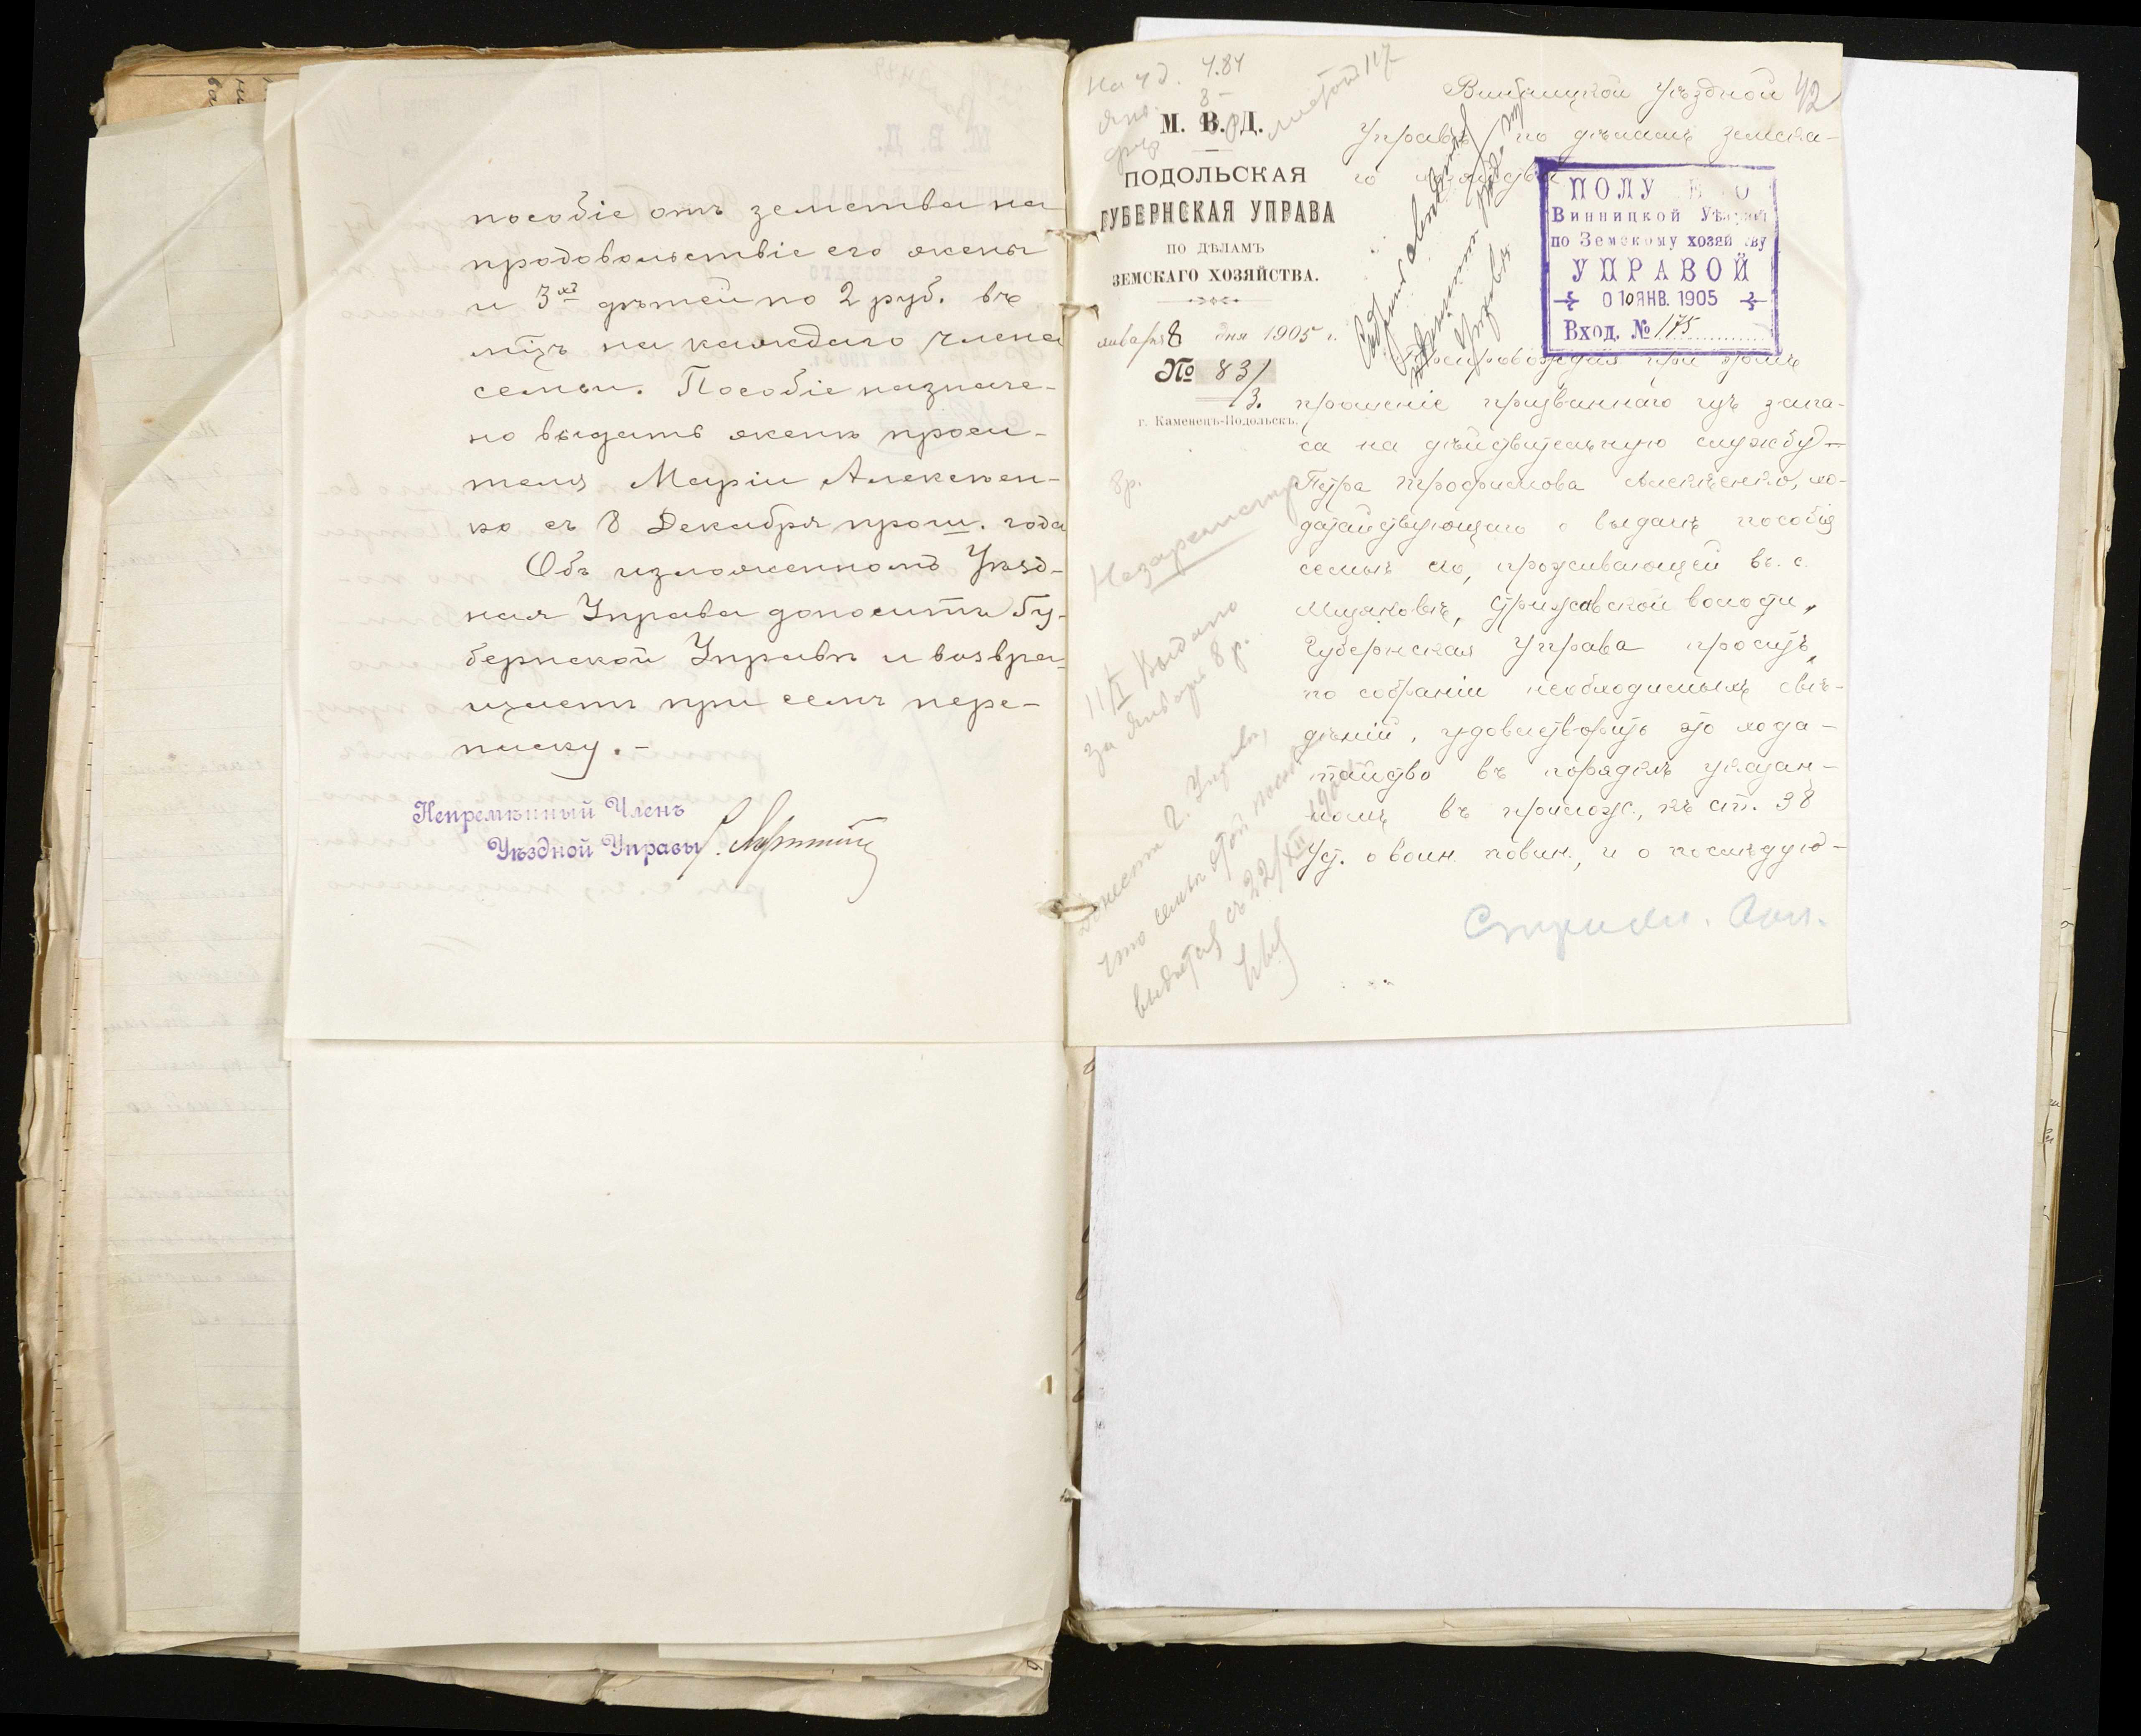 пособіе отъ земства на
продовольствіе его жены
и 3хъ дѣтей по 2 руб. въ
мѣцъ на каждаго члена
семьи. Пособіе назначе-
но выдать женѣ проси-
теля Маріи Алексѣен-
ко съ 8 Декабря прош. года
Объ изложенномъ Уѣзд-
ная Управа доноситъ Гу-
бернской Управѣ и возвра-
щаетъ при семъ пере-
писку. –
Непремѣнный Членъ
Уѣздной Управы
На 4 д. 4.84
8 –
М. В. Д.
ПОДОЛЬСКАЯ
ГУБЕРНСКАЯ УПРАВА
ПО ДѢЛАМЪ
ЗЕМСКАГО ХОЗЯЙСТВА.
января 8 дня 1905 г.
№ 831
/3.
г. Каменецъ-Подольскъ.
42
Винницкой Уѣздной
Управѣ по дѣламъ Земска-
го хозяйства
ПОЛУ Е О
Винницкой Уѣздной
по Земскому хозяйству
УПРАВОЙ
10 ЯНВ. 1905
Вход. № 175
Препровождая при этомъ
прошеніе призваннаго изъ запа-
са на дѣйствительную службу –
Петра Трофимова Алексѣенко, хо-
датайствующаго о выдачѣ пособія
семьѣ его, проживающей въ с.
Мизяковѣ, Стрижавской волости,
Губернская Управа проситъ,
по собраніи необходимыхъ свѣ-
дѣній, удовлетворить это хода-
тайство въ порядкѣ указан-
номъ въ прилож. къ ст. 38
Уст. о воин. повин., и о послѣдую-
8р.
11/I Выдано
за январь 8 р.
Донести Г. Управѣ,
что семьѣ этой пособіе
выдается съ 22/XII 1904
Стриж. Вол.